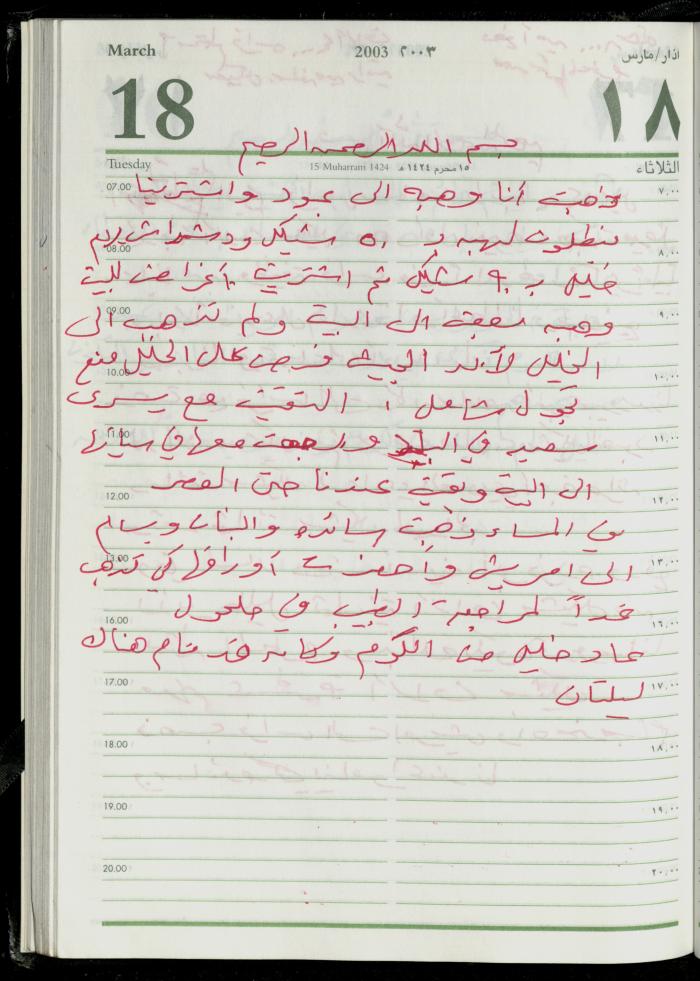 March 2003 ٢٠٠٣ اذار/مارس
18 ١٨
بسم الله الرحمن الرحيم
Tuesday 15 Muharram 1424 ١٥ محرم ١٤٢٤ هـ الثلاثاء
07.00 ذهبت أنا وهبه الى عبود واشترينا ٧،٠٠
بنطلون لهبه بـ ٥٠ شيكل
08.00 ٨،٠٠
خليل بـ ٩٠ شيكل ثم اشتريت أغراض للبيت
09.00 ٩،٠٠
وهبه الى البيت ولم تذهب الى
الخليل لأن الجيش فرض على الخليل منع
10.00 ١٠،٠٠
تجول شامل التقيت مع يسرى
11.00 ١١،٠٠
سعيد في البلد ورجعت معها في سيارتها
الى البيت وبقيت عندنا حتى العصر
12.00 ١٢،٠٠
في المساء ذهبت سائده والبنات وسالم
13.00 ١٣،٠٠
الى امريش وأحضرت أوراقها كي تذهب
غداً لمراجعة الطبيب في حلحول
16.00 ١٦،٠٠
عاد خليل من الكرم وكان قد نام هناك
17.00 ١٧،٠٠
ليلتان
18.00 ١٨،٠٠
19.00 ١٩،٠٠
20.00 ٢٠،٠٠